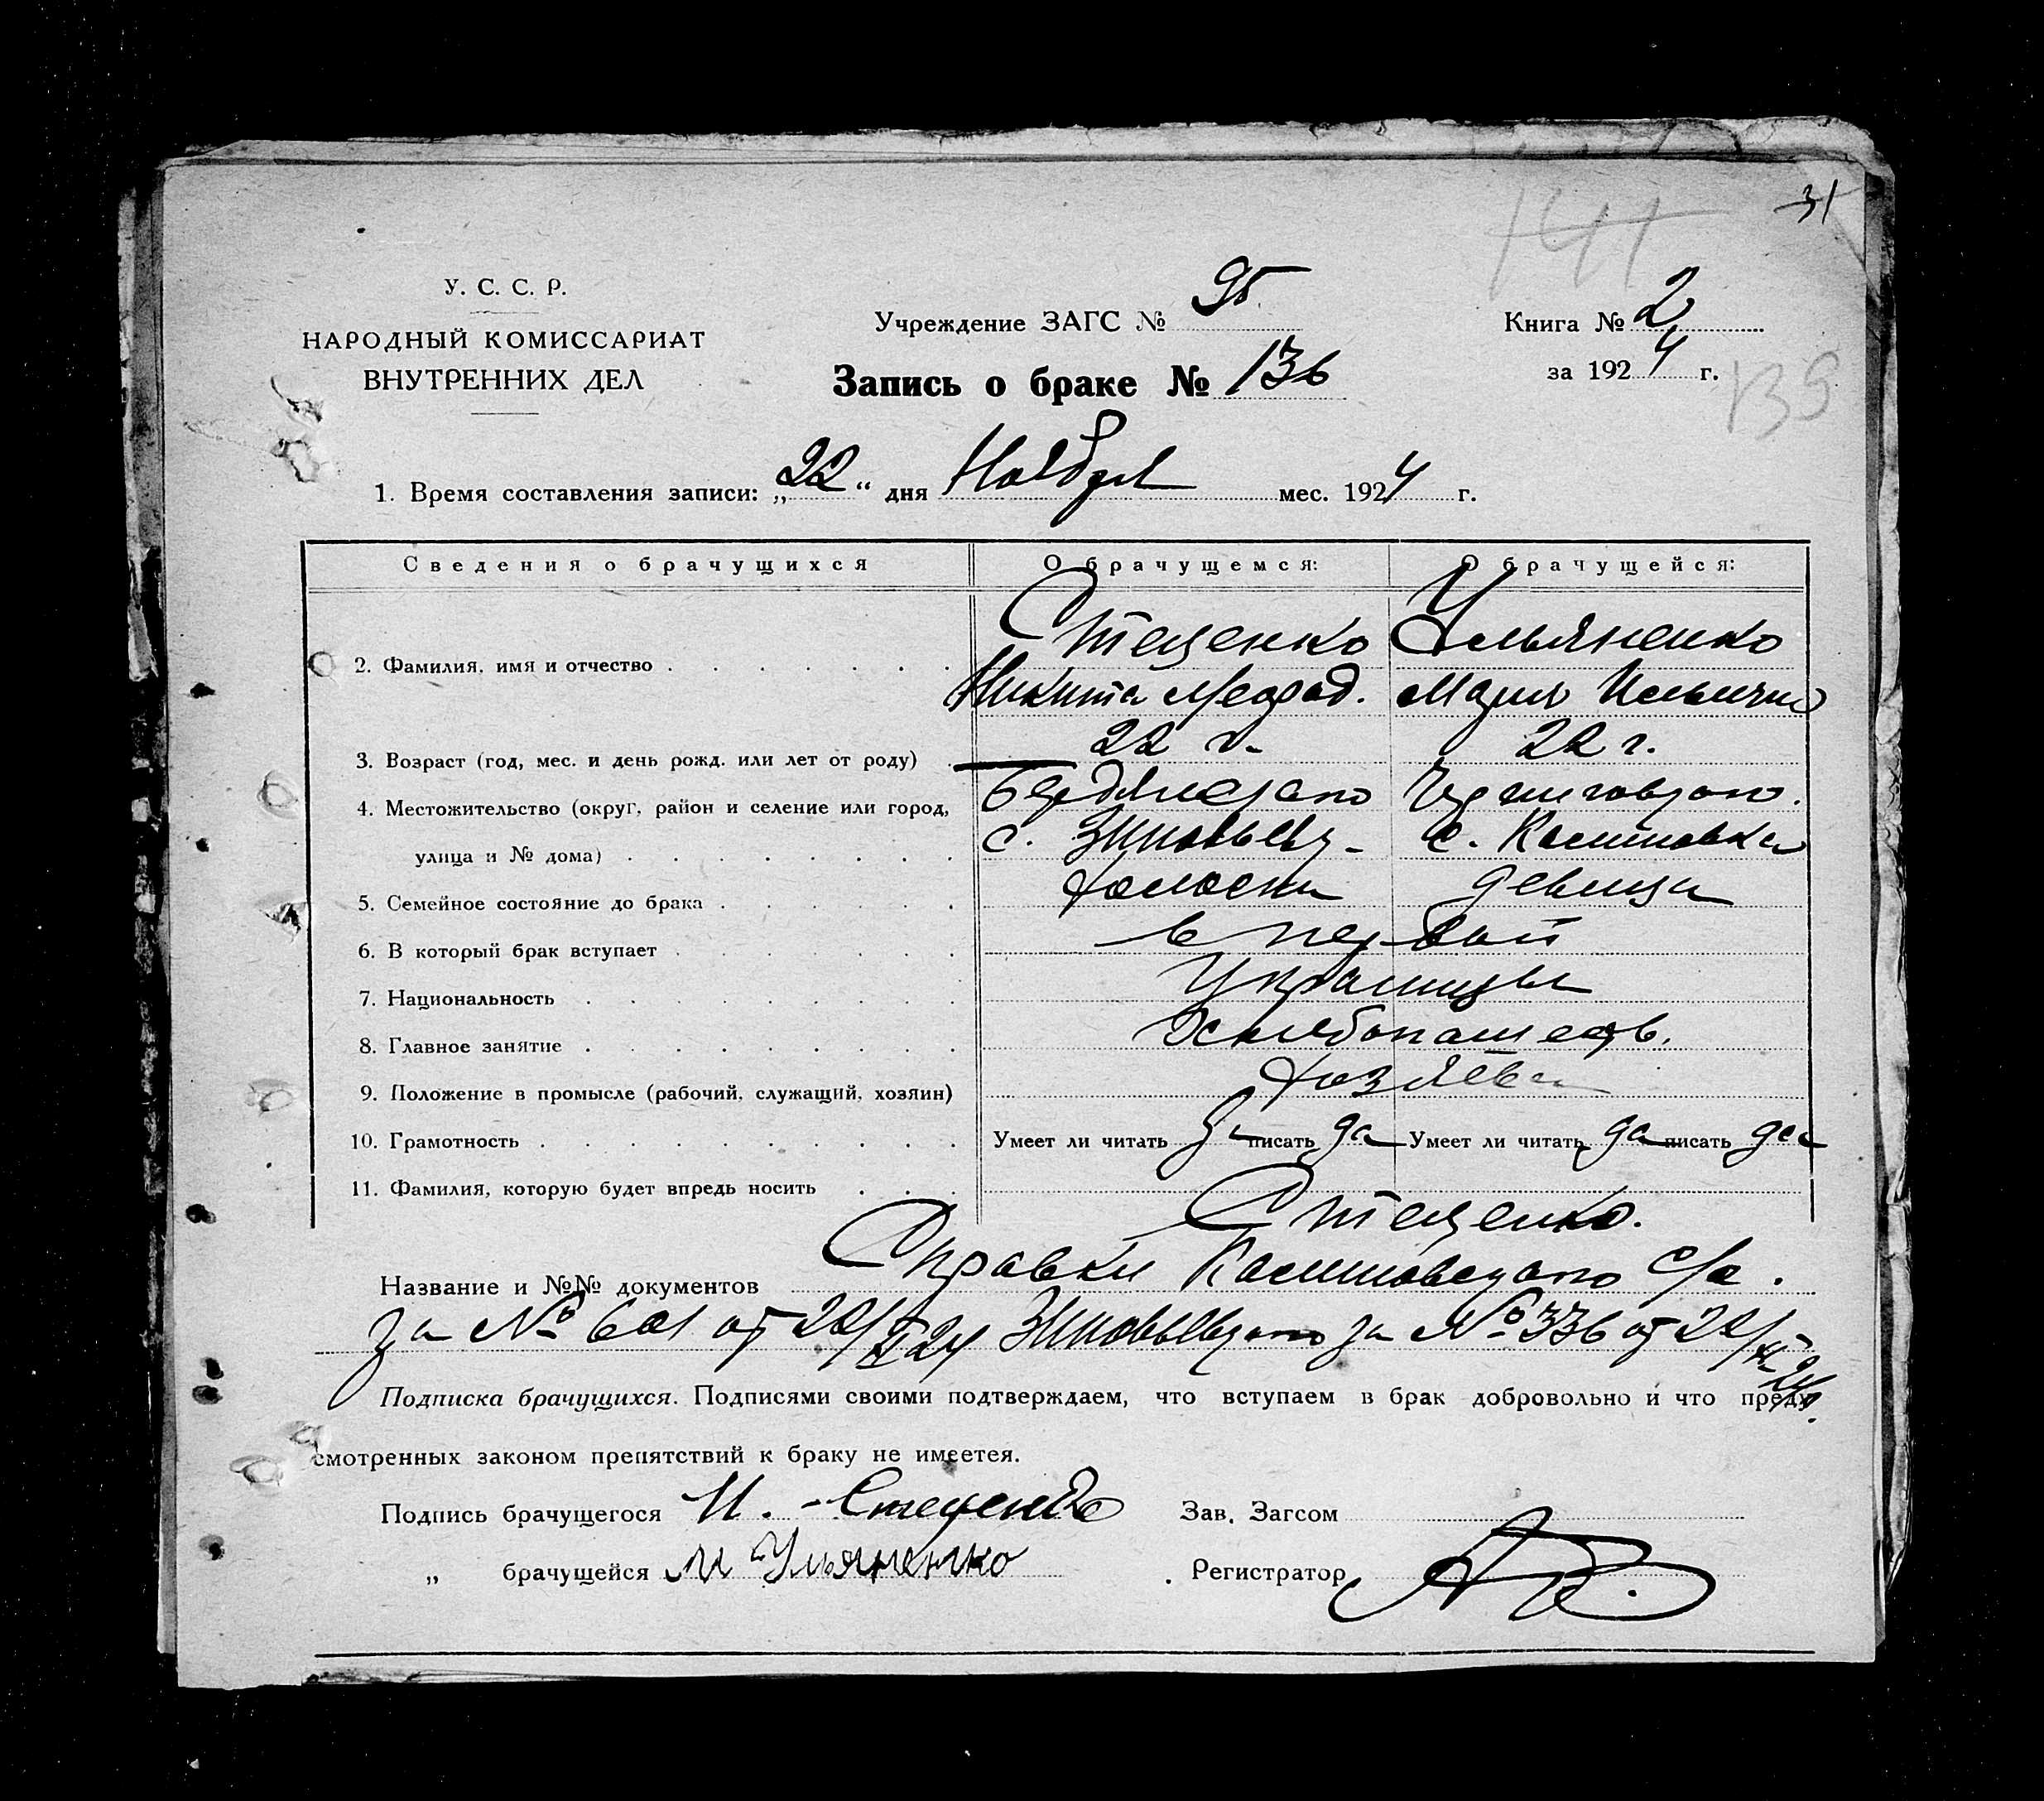 31
141
У. С. С. Р.
НАРОДНЫЙ КОМИССАРИАТ
ВНУТРЕННИХ ДЕЛ
Учреждение ЗАГС № 95
Книга № 2
Запись о браке № 136
за 1924 г.
139
1. Время составления записи: „22“ дня Ноября мес. 1924 г.
Сведения о брачущихся О брачущемся: О брачущейся:
Стеценко Ульяненко
2. Фамилия, имя и отчество Никита Мария Ильинич
3. Возраст (год, мес. и день рожд. или лет от роду) 22 г. 22 г.
4. Местожительство (округ, район и селение или город, Бердянского Черниговского
улица и № дома) с. Зиновьев- с.
5. Семейное состояние до брака холост девица
6. В который брак вступает в первый
7. Национальность Украинцы
8. Главное занятие Хлебопашеств.
9. Положение в промысле (рабочий, служащий, хозяин) хозяева
10. Грамотность Умеет ли читать да писать да Умеет ли читать да писать да
11. Фамилия, которую будет впредь носить
Стеценко.
Название и №№ документов Справки с/с.
за № 601 от 22/XI 24 Зиновьевского за № 336 от 22/XI-24 г.
Подписка брачущихся. Подписями своими подтверждаем, что вступаем в брак добровольно и что преду-
смотренных законом препятствий к браку не имеется.
Подпись брачущегося Н. Стеценко Зав. Загсом
„ брачущейся М Ульяненко Регистратор